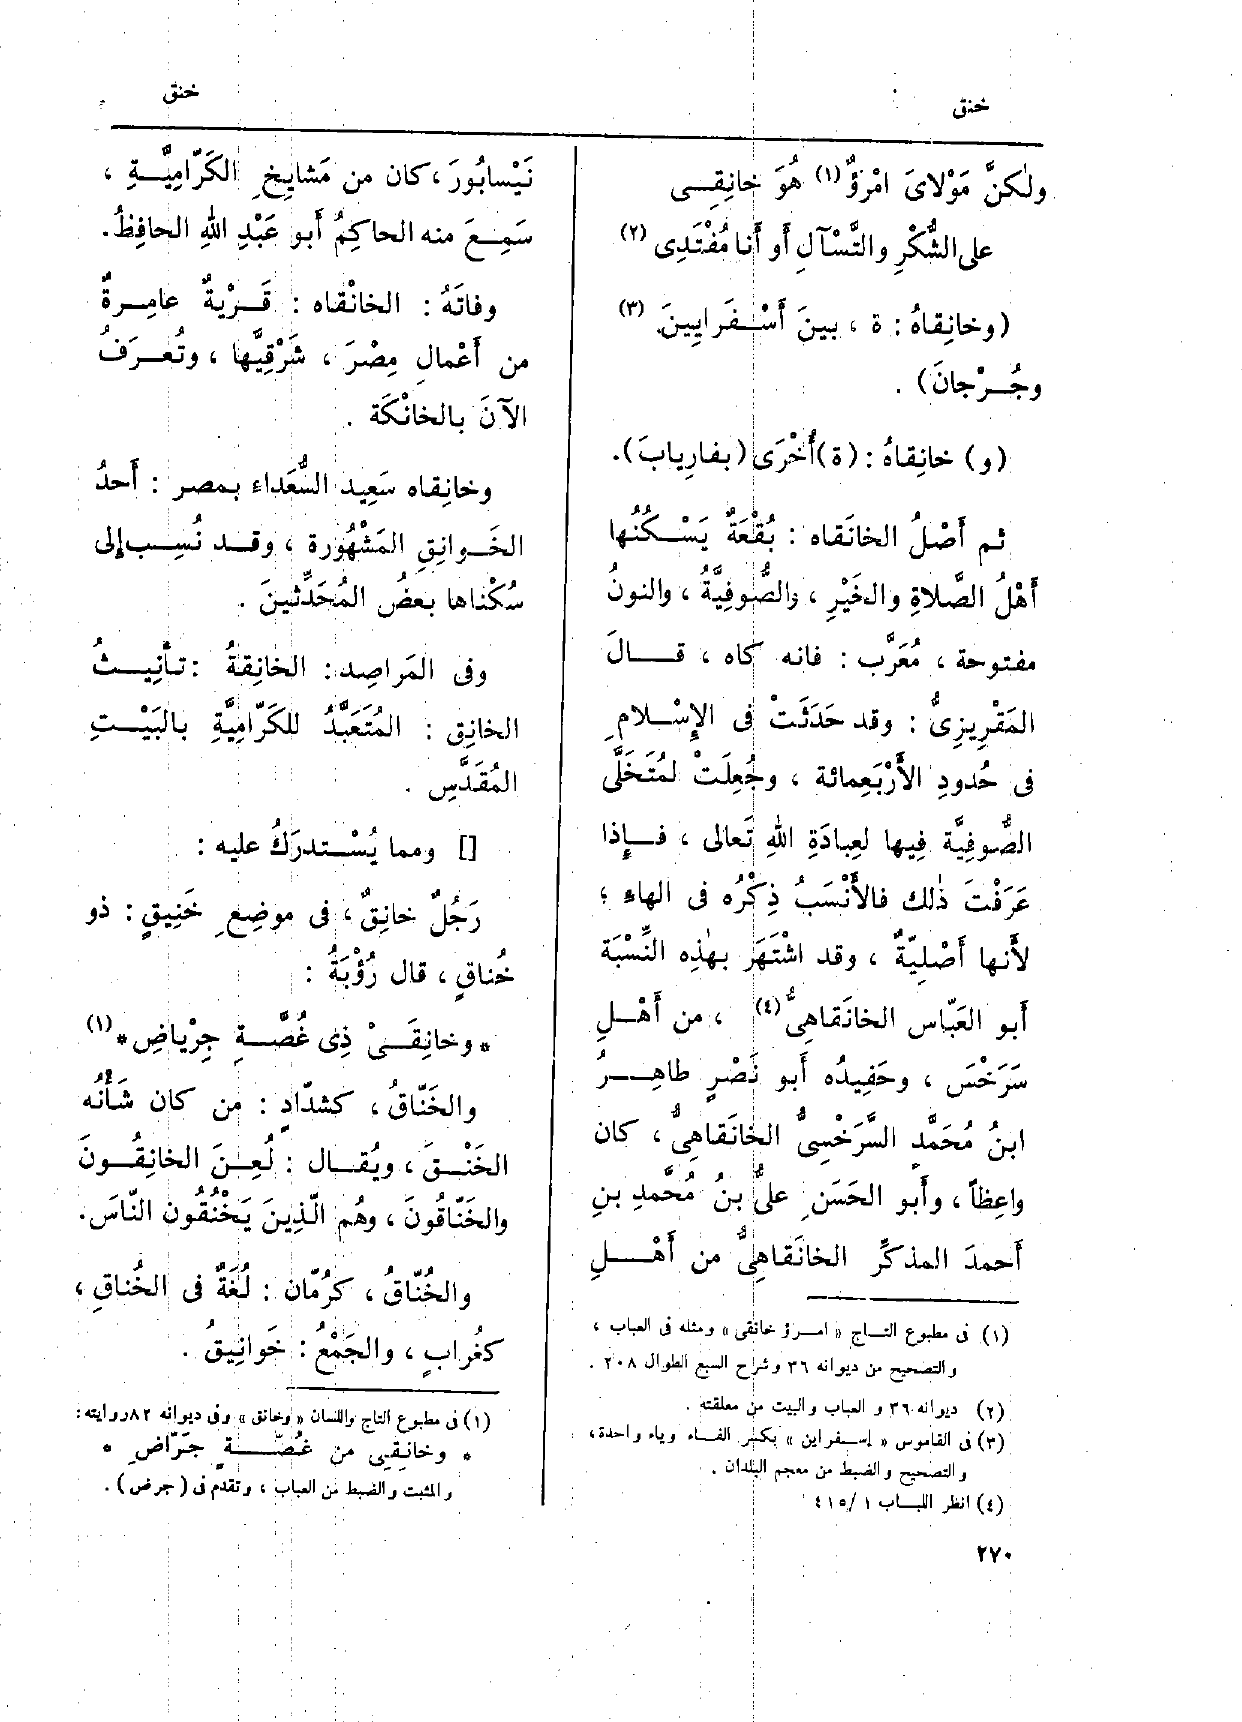 خنق
ولٰكنَّ مَوْلاىَ امْرُؤٌ (١) هُوَ خانِقِـى
على الشُّكْرِ والتَّسْآلِ أو أنا مُفْتَدِى (٢)
(وخانِقاهُ : ة ، بينَ أَسْـفَرايِينَ (٣)
وجُـرْجانَ) .
(و) خانِقاهُ : (ة) أُخْرَى (بفارِيابَ).
ثم أَصْلُ الخانَقاه : بُقْعَةٌ يَسْـكُنُها
أَهْلُ الصَّلاةِ والخَيْرِ ، والصُّوفِيَّةُ ، والنونُ
مفتوحة ، مُعَرَّب : فانه كاه ، قـالَ
المَقْرِيزِىُّ : وقد حَدَثَتْ فى الإِسْـلامِ
فى حُدودِ الأَرْبَعِمائة ، وجُعِلَتْ لمُتَخَلَّى
الصُّوفِيَّة فِيها لعِبادَةِ اللهِ تَعالى ، فـإِذا
عَرَفْتَ ذٰلك فالأَنْسَبُ ذِكْرُه فى الهاءِ ؛
لأَنها أَصْلِيّةٌ ، وقد اشْتَهَرَ بهٰذِه النِّسْبَة
أبو العَبّاس الخانَقاهِىُّ (٤) ، من أَهْـلِ
سَرَخْسَ ، وحَفِيدُه أبو نَصْرٍ طاهِـرُ
ابنُ مُحَمَّدٍ السَّرَخْسِىُّ الخانَقاهِىُّ ، كان
واعِظاً ، وأَبو الحَسَنِ علىُّ بنُ مُحَّمدِ بنِ
أَحمدَ المذكِّر الخانَقاهِىُّ من أَهْـلِ
(١) فى مطبوع التـاج « امرؤ خانقى » ومثله فى العباب ،
والتصحيح من ديوانه ٣٦ وشراح السبع الطوال ٢٠٨ .
(٢) ديوانه ٣٦ و العباب والبيت من معلقته .
(٣) فى القاموس « إسـفراين » بكسر الفـاء وياء واحدة ،
والتصحيح والضبط من معجم البلدان .
(٤) انظر اللبـاب ١ /٤١٥
٢٧٠
خنق
نَيْسابُورَ ، كان من مَشايِخِ الكَرّامِيَّـةِ ،
سَمِـعَ منه الحاكِمُ أَبو عَبْدِ اللهِ الحافِظُ.
وفاتَهُ : الخانْقاه : قَـرْيةٌ عامِـرةٌ
من أَعْمالِ مِصْرَ ، شَرْقِيَّها ، وتُعـرَفُ
الآنَ بالخانْكَة .
وخانِقاه سَعِيد السُّعَداء بمصر : أَحدُ
الخَـوانِقِ المَشْهُورة ، وقـد نُسِـب إلى
سُكْناها بعضُ المُحَدِّثينَ .
وفى المَراصِد : الخانِقةُ : تـأْنِيـثُ
الخانِق : المُتَعَبَّدُ للكَرّامِيَّةِ بالبَيْـتِ
المُقَدَّسِ .
[] ومما يُسْـتدرَكُ عليه :
رَجُلٌ خانِقٌ ، فى موضِعِ خَنِيقٍ : ذو
خُناقٍ ، قال رُؤْبَةُ :
* وخانِقَـىْ ذِى غُصَّـةٍ جِرْياضِ * (١)
والخَنّاقُ ، كشدّادٍ : من كان شَأْنُه
الخَنْـقَ ، ويُقـال : لُعِـنَ الخانِقُـونَ
والخَنّاقُونَ ، وهُم الّذِينَ يَخْنُقُون النّاسَ.
والخُنّاقُ ، كرُمّان : لُغَةٌ فى الخُناقِ ،
كغُرابٍ ، والجَمْعُ : خَوانِيقُ .
(١) فى مطبوع التاج واللسان « وخانق » وفى ديوانه ٨٢ روايته :
* وخانِقِيى من غُصّـةٍ جَرّاضِ *
والمثبت والضبط من العباب ، وتقدم فى (جرض) .